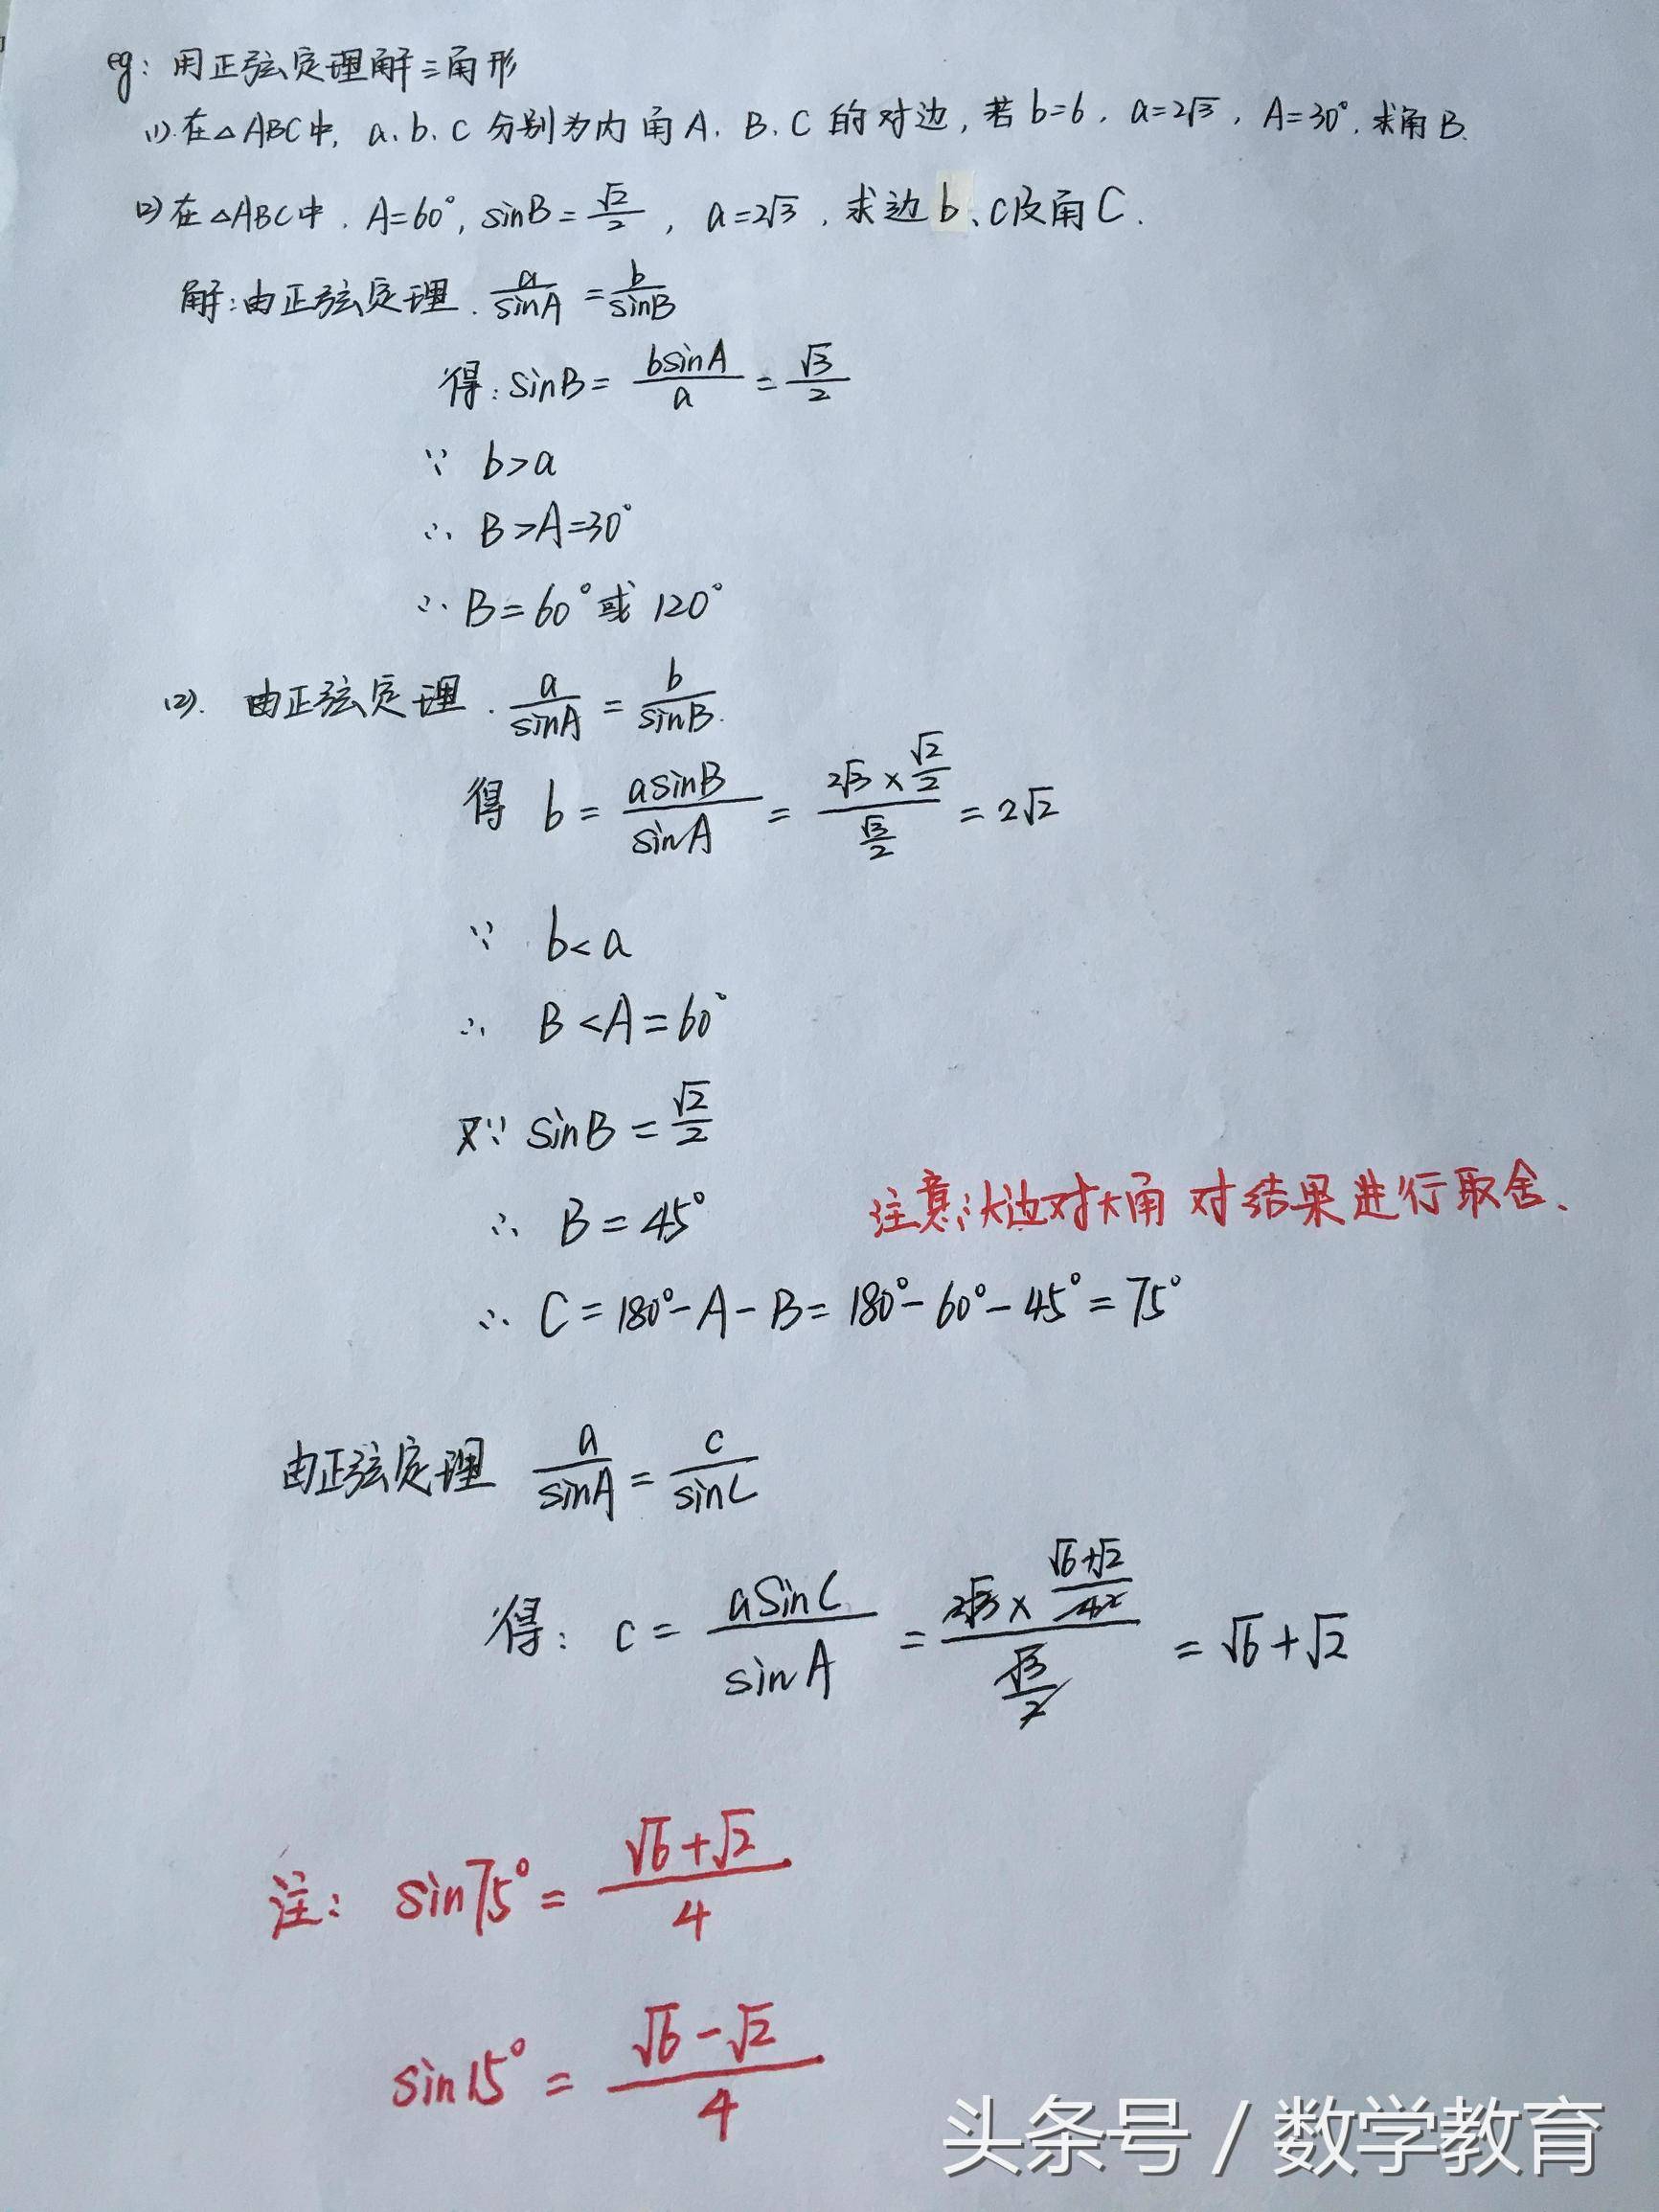 eg: 用正弦定理解三角形
(1).在△ABC中, a、b、c 分别为内角A、B、C的对边, 若b=6, a=2√3, A=30°, 求角B.
(2)在△ABC中, A=60°, sinB=√2/2, a=2√3, 求边b、c及角C.
解:由正弦定理. a/sinA = b/sinB
得: sinB = bsinA/a = √3/2
∵ b>a
∴ B>A=30°
∴ B=60°或120°
(2). 由正弦定理. a/sinA = b/sinB.
得 b = asinB/sinA = (2√3×√2/2)/(√3/2) = 2√2
∵ b<a
∴ B<A=60°
又∵ sinB = √2/2
∴ B=45°
注意:大边对大角 对结果进行取舍、
∴ C=180°-A-B=180°-60°-45°=75°
由正弦定理 a/sinA = c/sinC
得: c = asinC/sinA = (2√3×(√6+√2)/42)/(√3/2) = √6+√2
注: sin75° = (√6+√2)/4
sin15° = (√6-√2)/4
头条号 / 数学教育